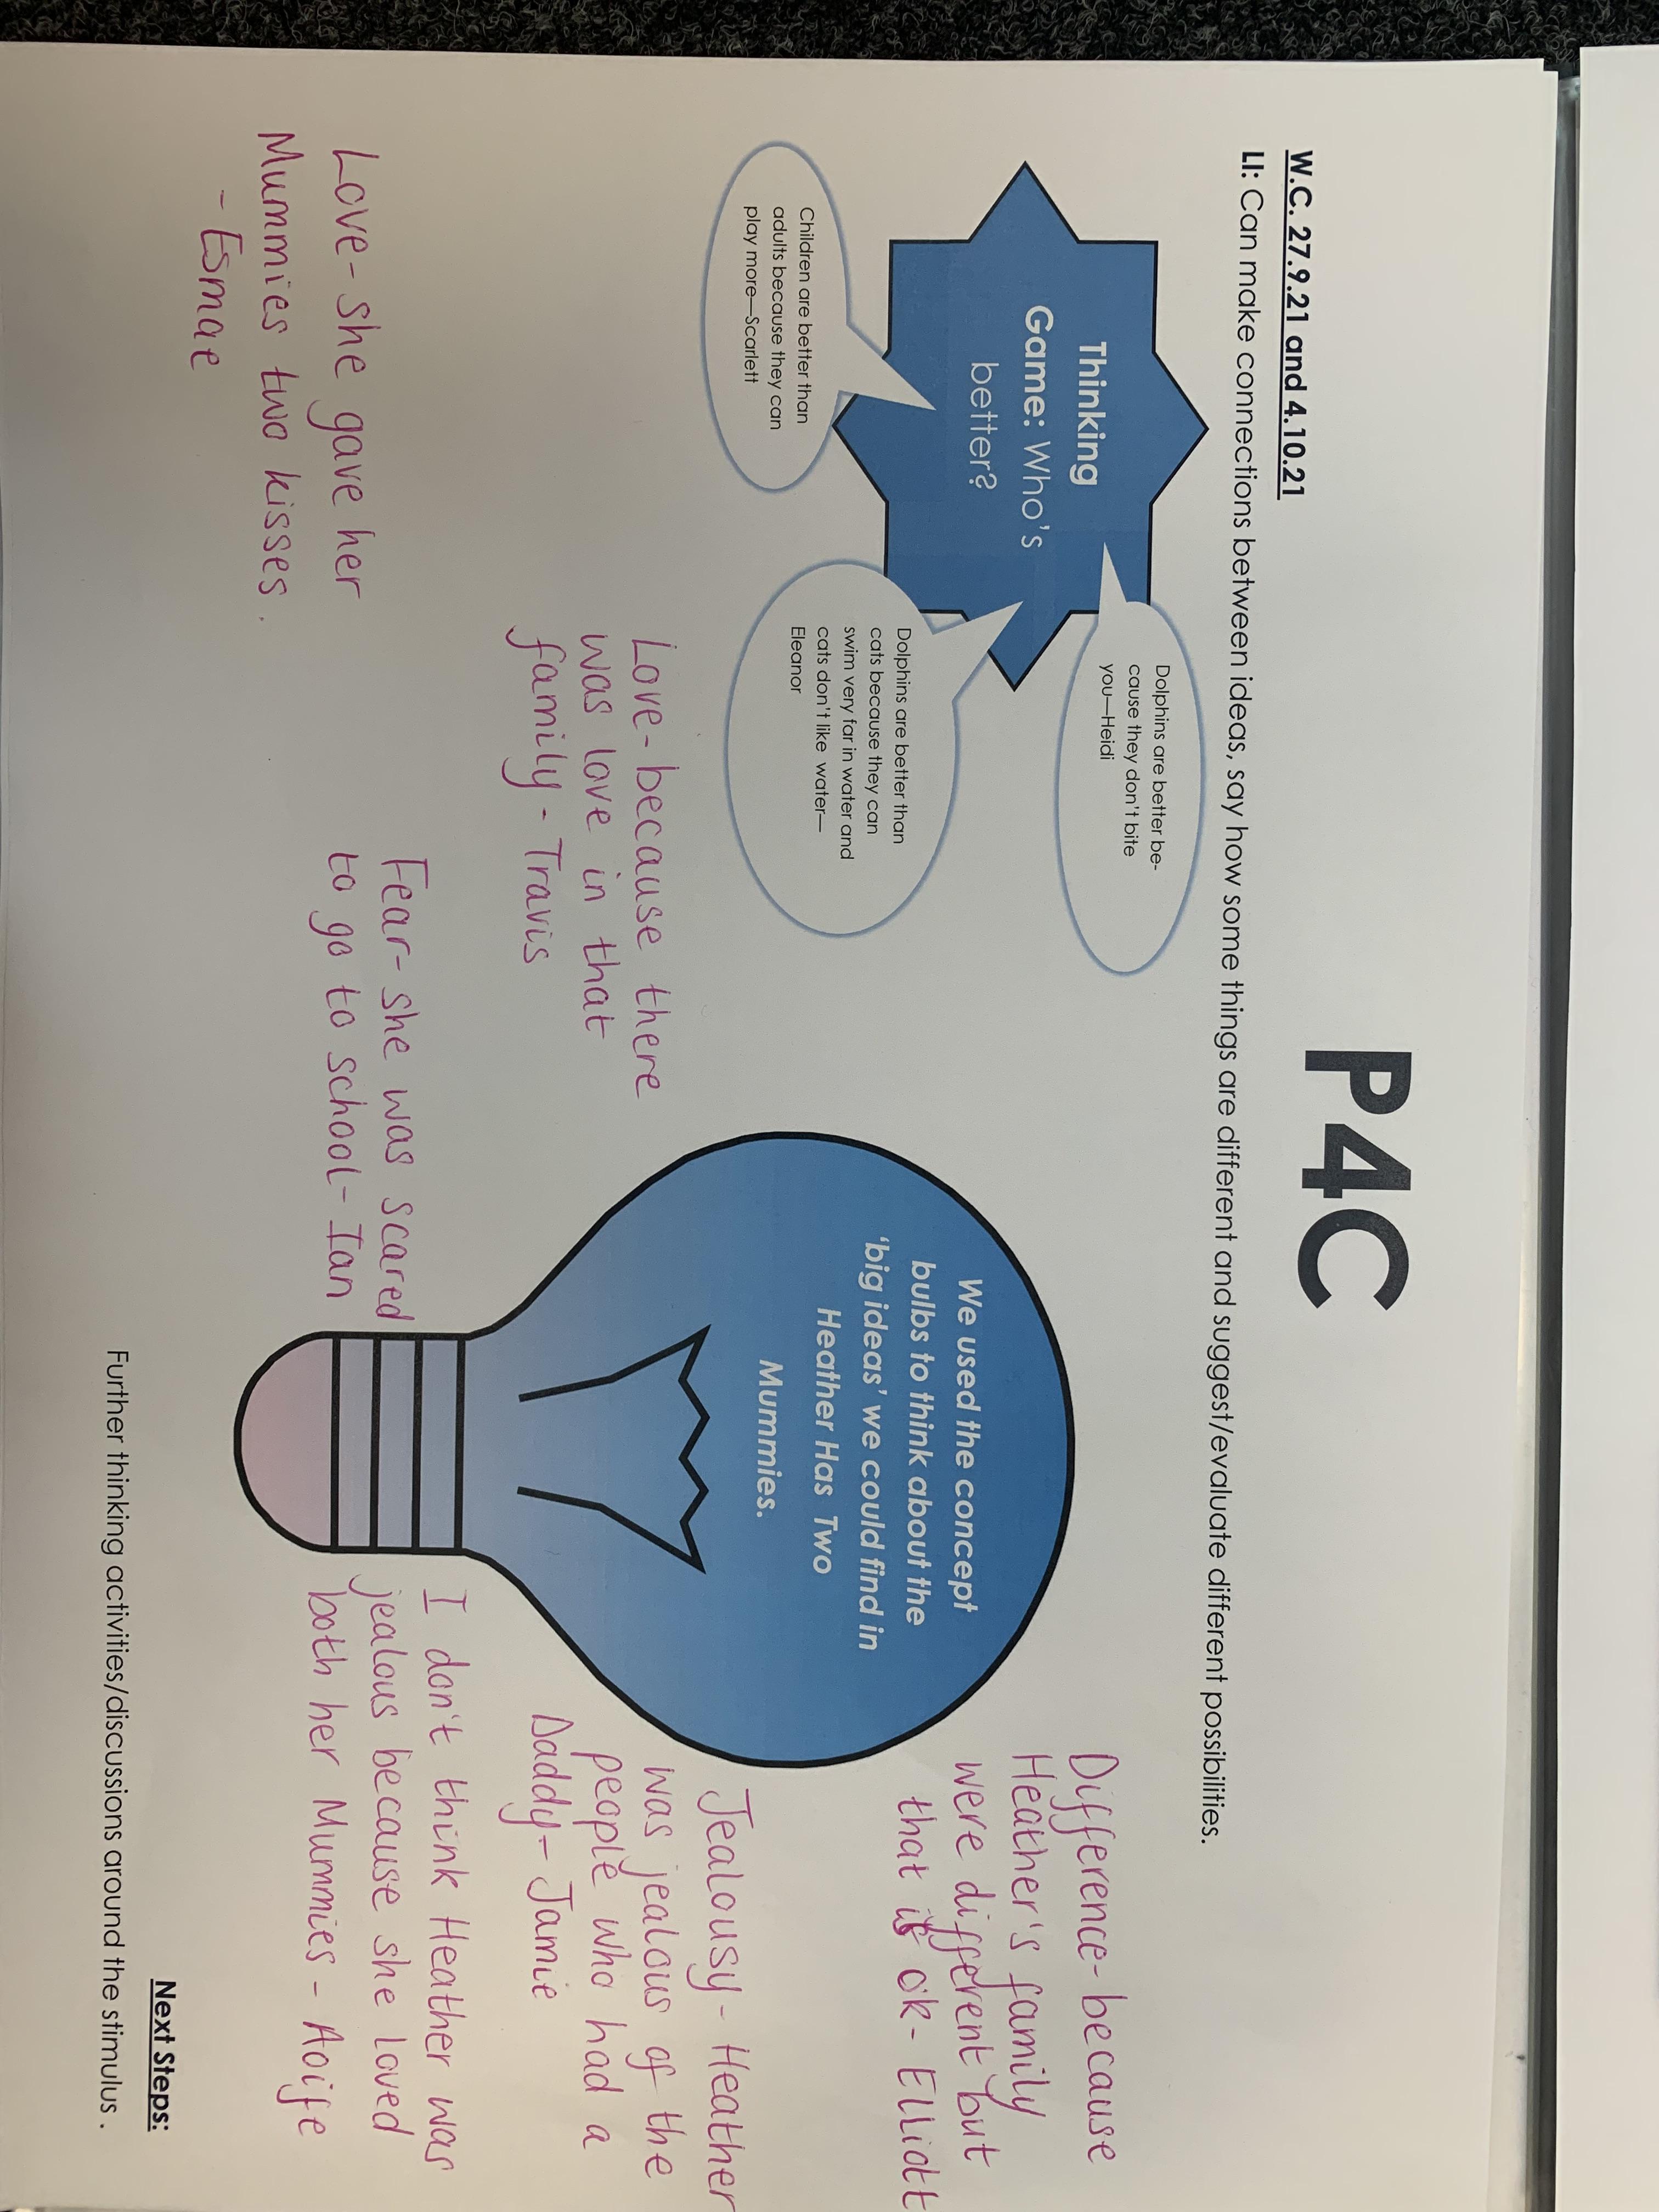 P4C
W.C. 27.9.21 and 4.10.21
LI: Can make connections between ideas, say how some things are different and suggest/evaluate different possibilities.
Thinking
Game: Who's
better?
Dolphins are better be-
cause they don't bite
you—Heidi
Dolphins are better than
cats because they can
swim very far in water and
cats don't like water—
Eleanor
Children are better than
adults because they can
play more—Scarlett
We used the concept
bulbs to think about the
'big ideas' we could find in
Heather Has Two
Mummies.
Difference- because
Heather's family
were different but
that is ok- Elliott
Jealousy- Heather
was jealous of the
people who had a
Daddy- Jamie
I don't think Heather was
jealous because she loved
both her Mummies - Aoife
Love-because there
was love in that
family - Travis
Fear- she was scared
to go to school- Ian
Love- she gave her
Mummies two kisses.
- Esmae
Next Steps:
Further thinking activities/discussions around the stimulus .